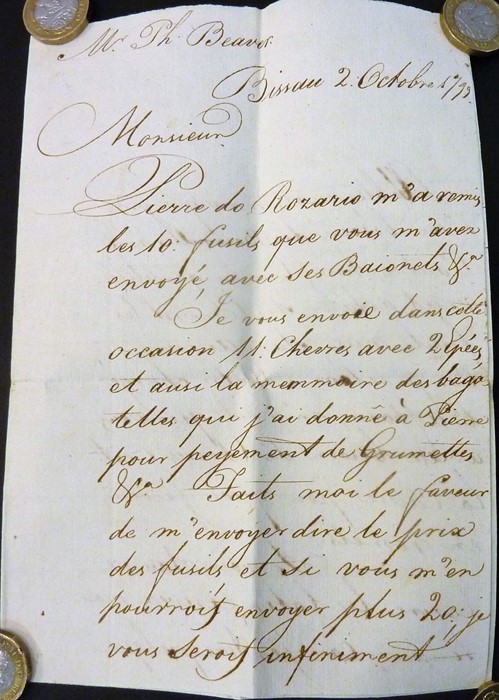 Mr. Ph. Beaver
Bissau 2. Octobre 1792.
Monsieur
Pierre do Rozario m'a remis
les 10: fusils que vous m'avez
envoyé avec ses Baionets &a
Je vous envoie dans cette
occasion 11: Chevres avec 2 Epées
et ausi la memmoire des baga
telles qui j'ai donnê à Pierre
pour peyement de Grumettes
&a Faits moi le faveur
de m'envoyer dire le prix
des fusils et si vous m'en
pourroit envoyer plus 20: je
vous seroit infiniment